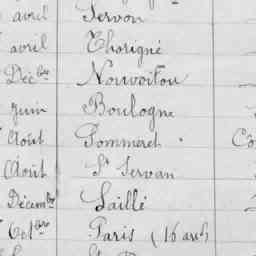 avril Servon
avril Thorigné
Déc.bre Nouvoitou
juin Boulogne
Août Pommeret Cô
Août St Servan
Décembre Laillé
8bre Paris (16 arrt)